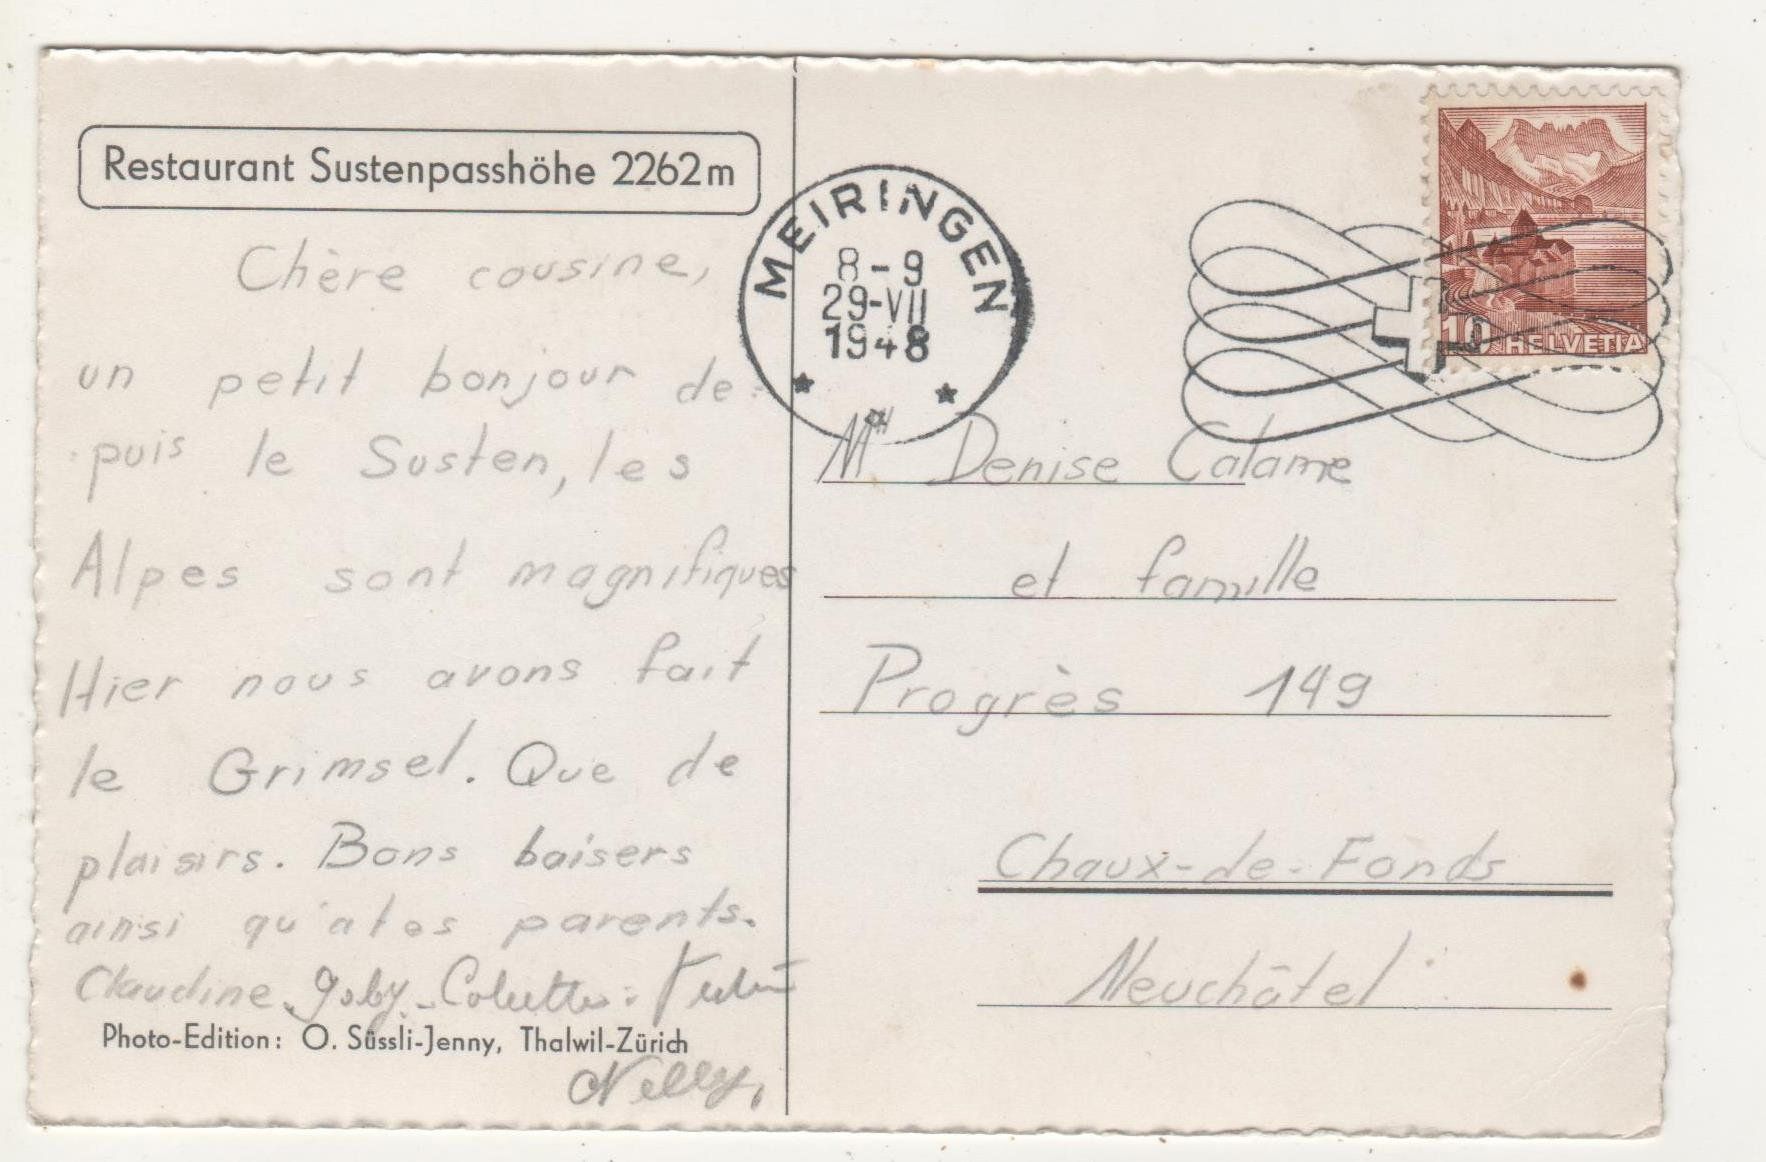 Restaurant Sustenpasshöhe 2262m
Chère cousine,
un petit bonjour de-
puis le Susten, les
Alpes sont magnifiques
Hier nous avons fait
le Grimsel. Que de
plaisirs. Bons baisers
ainsi qu'a tes parents.
Claudine Colette
Photo-Edition: O. Süssli-Jenny, Thalwil-Zürich
Nelly,
MEIRINGEN
8-9
29-VII
1948
10 HELVETIA
Denise Calame
et famille
Progrès 149
Chaux-de-Fonds
Neuchâtel